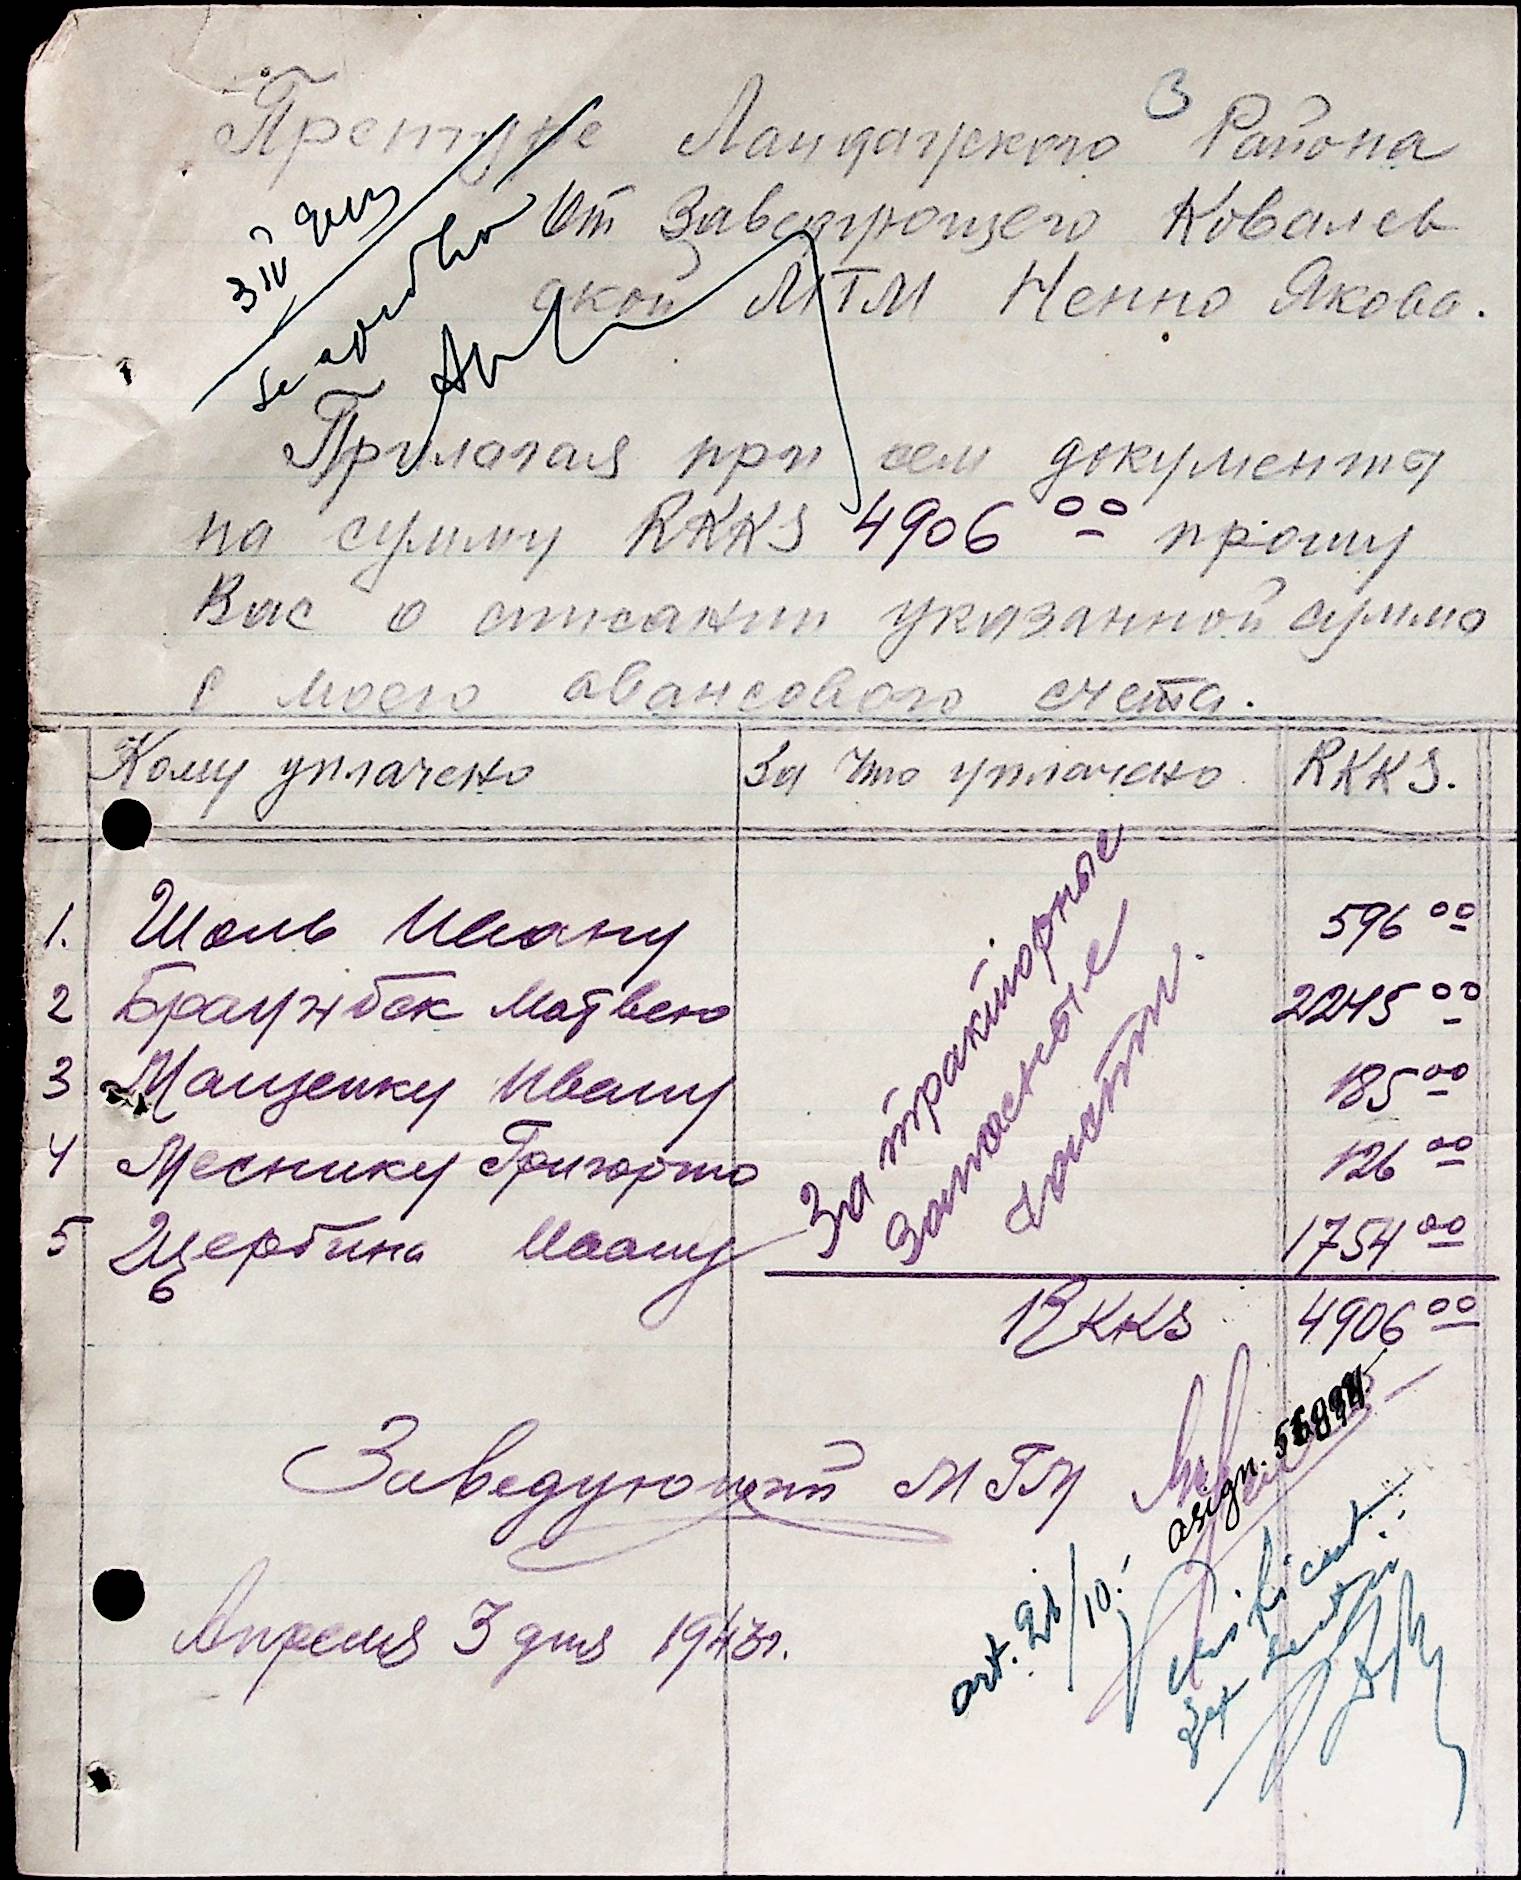 3
Претуре Ландауского Района
От Заведующего Ковалев
ской МТМ Ненно Якова.
se aproba
Прилагая при сем документы
на сумму RKKS 4906 00 прошу
Вас о списании указанной суммы
с моего авансового счета.
Кому уплачено За что уплачено RKKS.
1. Шоль Ивану 596 00
2 Браужбек Матвею 2245 00
3 Мащенку Ивану 185 00
4 Меснику Григорию 126 00
5 Щербина Ивану 1754 00
За тракторные
запасные
части.
RKKS 4906 00
Заведующий МТМ
asign.
art. 21/10.
Verificat
Апреля 3 дня 1943г.